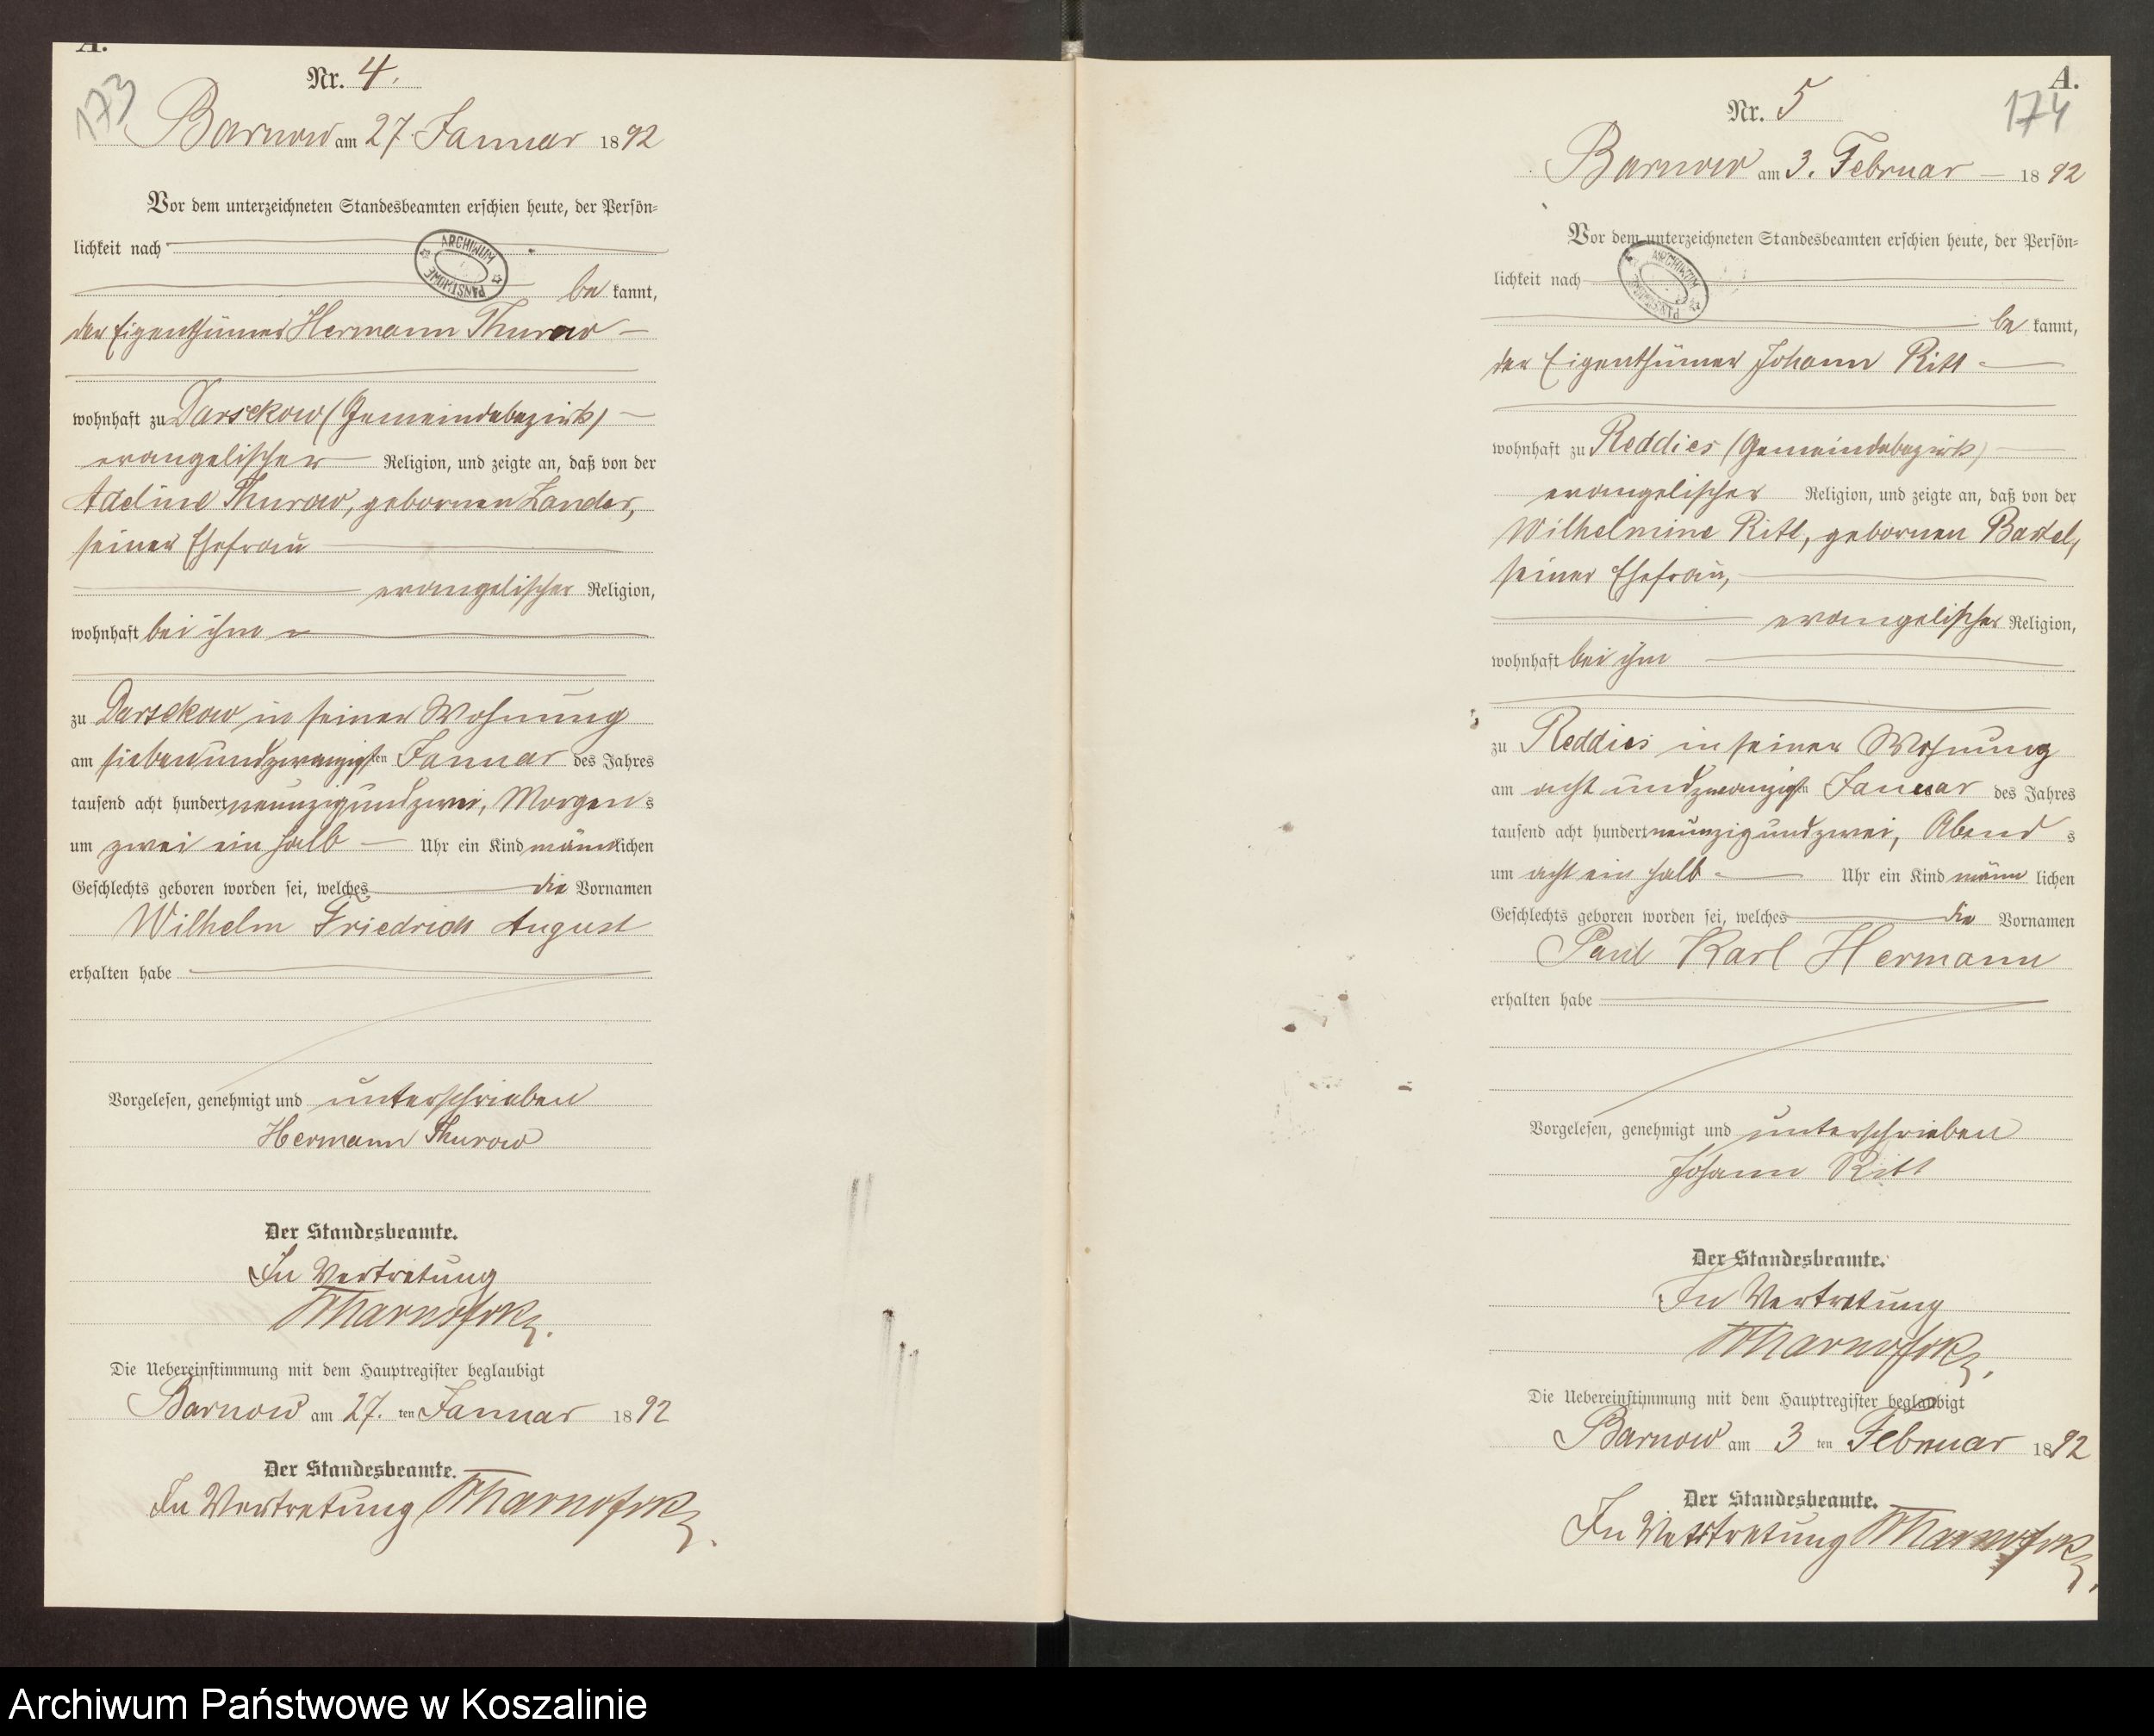 A.
173
Nr. 4.
Barnow am 27. Januar 1892
Vor dem unterzeichneten Standesbeamten erschien heute, der Persön=
lichkeit nach
ARCHIWUM PAŃSTWOWE
be kannt,
der Eigenthümer Hermann Thurow
wohnhaft zu Darsekow (Gemeindebezirk)
evangelischer Religion, und zeigte an, daß von der
Adeline Thurow, gebornen Zander,
seiner Ehefrau
evangelischer Religion,
wohnhaft bei ihm
zu Darsekow in seiner Wohnung
am siebenundzwanzigsten Januar des Jahres
tausend acht hundert neunzigundzwei, Morgens
um zwei ein halb Uhr ein Kind männlichen
Geschlechts geboren worden sei, welches die Vornamen
Wilhelm Friedrich August
erhalten habe
Vorgelesen, genehmigt und unterschrieben
Hermann Thurow
Der Standesbeamte.
In Vertretung
Die Uebereinstimmung mit dem Hauptregister beglaubigt
Barnow am 27. ten Januar 1892
Der Standesbeamte.
In Vertretung
A.
174
Nr. 5
Barnow am 3. Februar 1892
Vor dem unterzeichneten Standesbeamten erschien heute, der Persön=
lichkeit nach
ARCHIWUM PAŃSTWOWE
be kannt,
der Eigenthümer Johann Ritt
wohnhaft zu Reddies (Gemeindebezirk)
evangelischer Religion, und zeigte an, daß von der
Wilhelmine Ritt, gebornen Bartel,
seiner Ehefrau,
evangelischer Religion,
wohnhaft bei ihm
zu Reddies in seiner Wohnung
am acht undzwanzigsten Januar des Jahres
tausend acht hundert neunzigundzwei, Abend s
um acht ein halb Uhr ein Kind männ lichen
Geschlechts geboren worden sei, welches die Vornamen
Paul Karl Hermann
erhalten habe
Vorgelesen, genehmigt und unterschrieben
Johann Ritt
Der Standesbeamte.
In Vertretung
Die Uebereinstimmung mit dem Hauptregister beglaubigt
Barnow am 3 ten Februar 1892
Der Standesbeamte.
In Vertretung
Archiwum Państwowe w Koszalinie